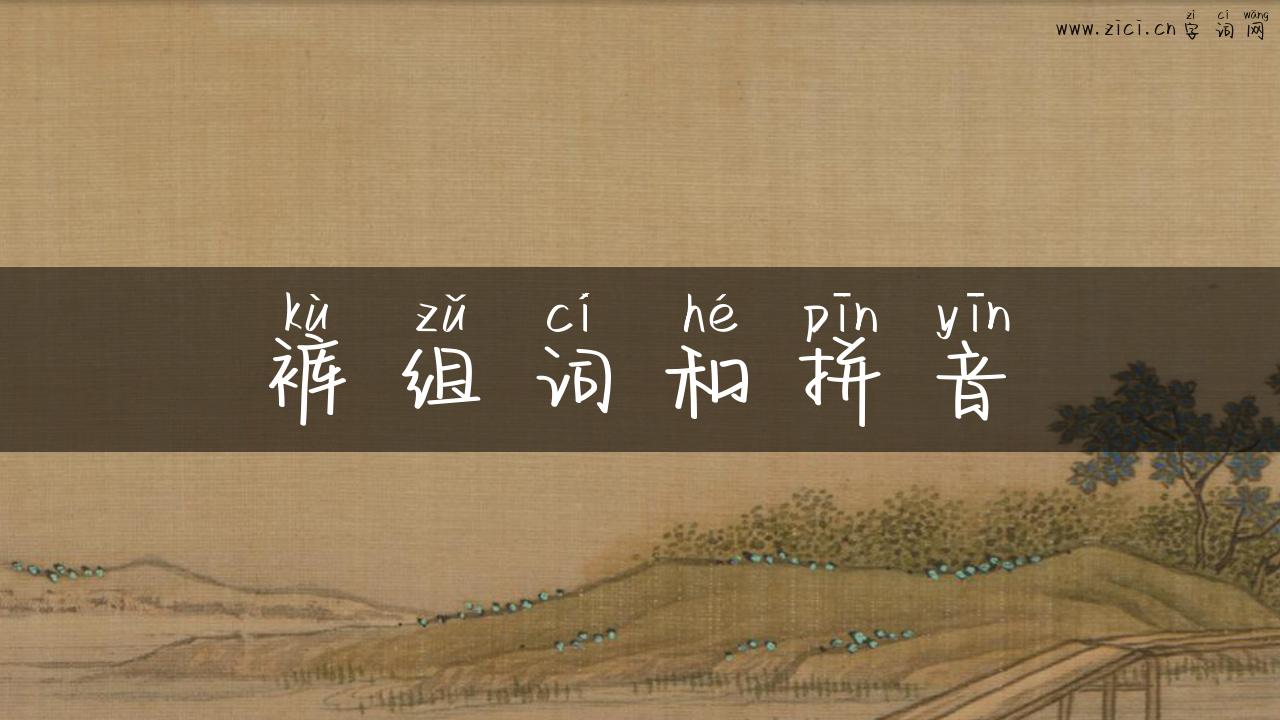 zì cí wǎng
www.zici.cn字词网
kù zǔ cí hé pīn yīn
裤组词和拼音